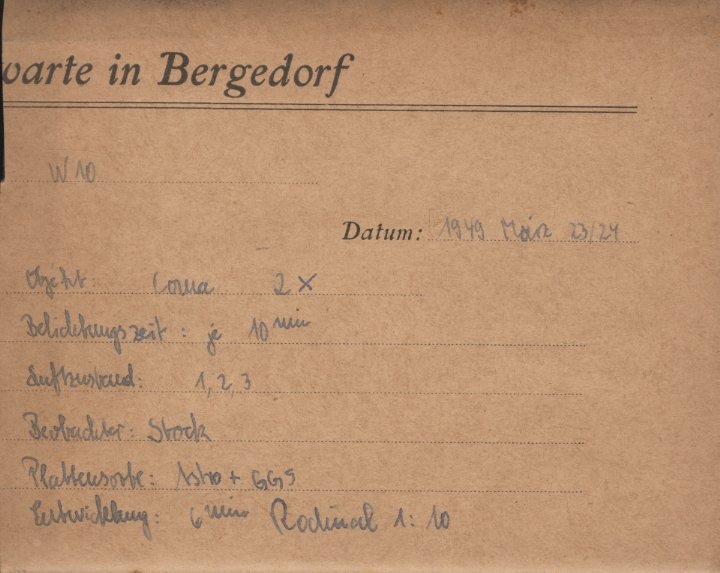 warte in Bergedorf
W 10
Datum: 1949 März 23/24
Objekt: Coma 2 ×
Belichtungszeit: je 10 min
Luftzustand: 1, 2, 3
Beobachter: Stock
Plattensorte: Astro + GG5
Entwicklung: 6 min Rodinal 1:10